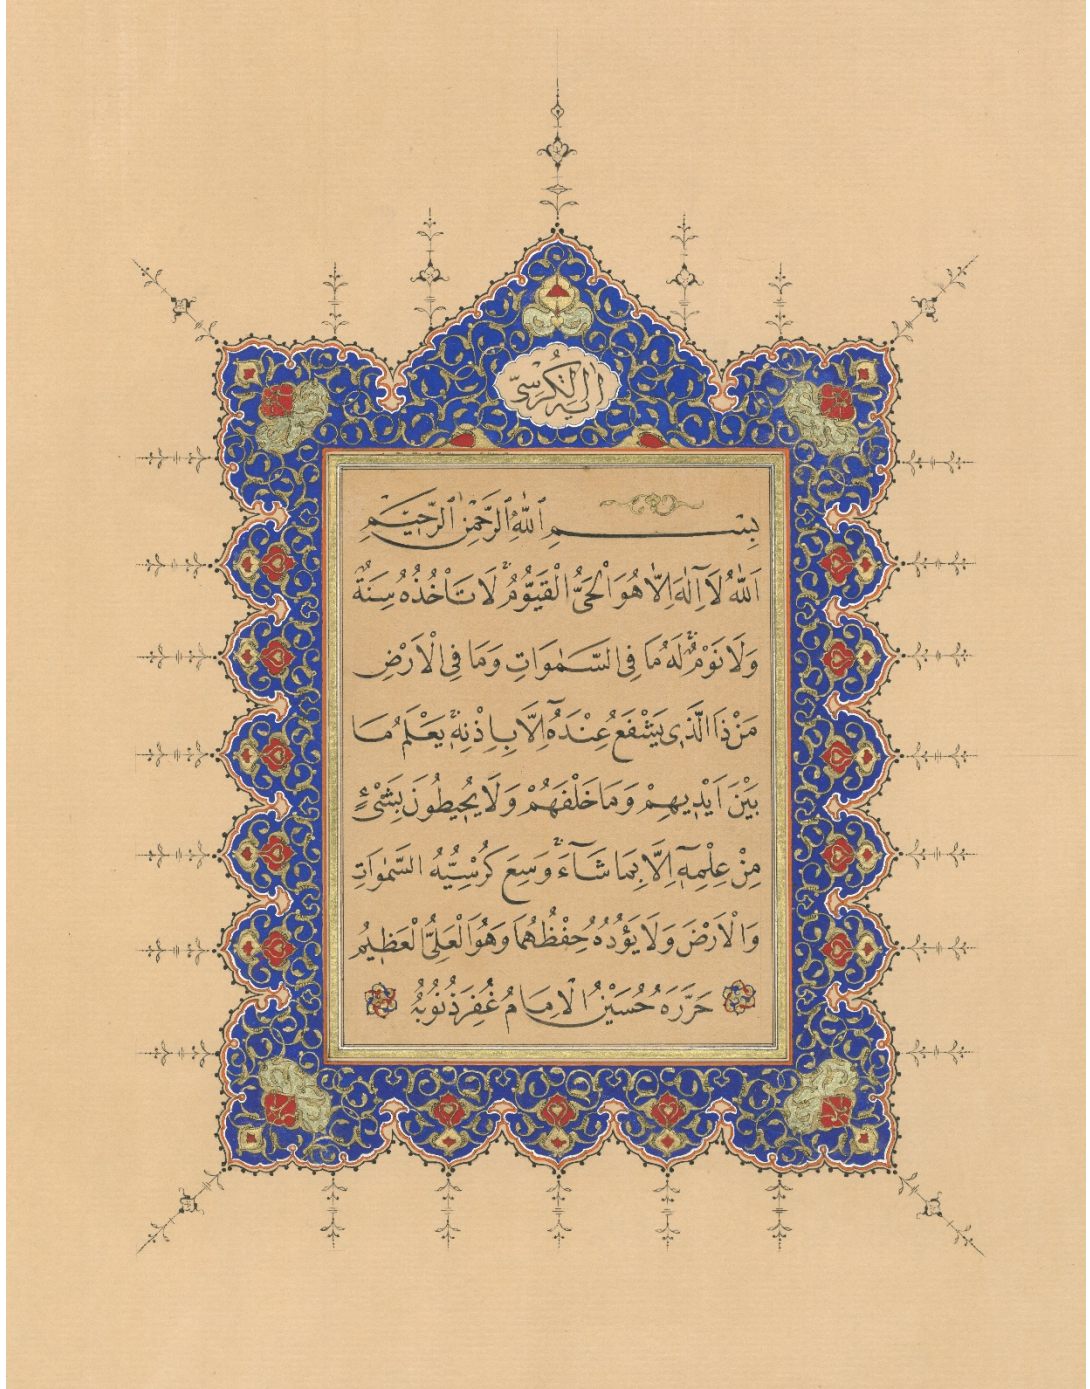 اٰيةالكرسىّ
بِسْــــمِ ٱللّٰهِ ٱلرَّحْمٰنِ ٱلرَّحِيْمِ
اَللّٰهُ لَآ اِلٰهَ اِلَّا هُوَ الْحَىُّ الْقَيُّوْمُۚ لَا تَأْخُذُهُ سِنَةٌ
وَلَا نَوْمٌۜ لَهُ مَا فِى السَّمٰوَاتِ وَمَا فِى الْاَرْضِ
مَنْ ذَا الَّذٖى يَشْفَعُ عِنْدَهُٓ اِلَّا بِاِذْنِهٖۚ يَعْلَمُ مَا
بَيْنَ اَيْدٖيهِمْ وَمَا خَلْفَهُمْ وَلَا يُحٖيطُونَ بِشَىْءٍ
مِنْ عِلْمِهٖٓ اِلَّا بِمَا شَآءَۚ وَسِعَ كُرْسِيُّهُ السَّمٰوَاتِ
وَالْاَرْضَ وَلَا يَؤُدُهُ حِفْظُهُمَا وَهُوَ الْعَلِىُّ الْعَظٖيمُ
حَرَّرَهُ حُسَيْنُ الْاِمَامُ غُفِرَ ذُنُوبُهُ